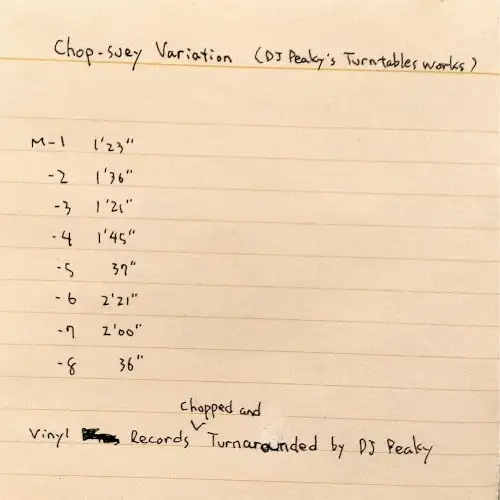 Chop-suey Variation (DJ Peaky's Turntables works)
M-1 1'23"
-2 1'36"
-3 1'21"
-4 1'45"
-5 37"
-6 2'21"
-7 2'00"
-8 36"
chopped and
Vinyl Records Turnarounded by DJ Peaky